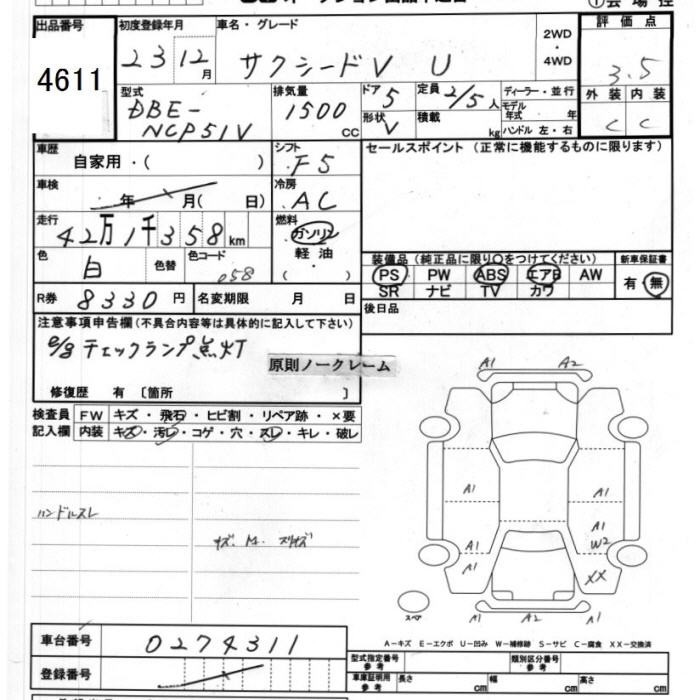 出品番号 初度登録年月 車名・グレード 2WD・4WD 評価点
4611 23年12月 サクシードV U 3.5
型式 排気量 ドア 定員 ディーラー・並行 外装 内装
DBE-NCP51V 1500cc 5 2/5人 モデル年式 年 C C
形状 V 積載 kg ハンドル 左・右
車歴 シフト セールスポイント(正常に機能するものに限ります)
自家用・( ) F5
車検 冷房
年 月( 日) AC
走行 燃料
42万1千358km ガソリン
色 色替 色コード 軽油・( )
白 058
装備品(純正品に限り○をつけてください) 新車保証書
PS PW ABS エアB AW 有・無
SR ナビ TV カワ
R券 8330円 名変期限 月 日 後日品
注意事項申告欄(不具合内容等は具体的に記入して下さい)
e/g チェックランプ点灯
原則ノークレーム
修復歴 有 〔箇所 〕
検査員 FW キズ・飛石・ヒビ割・リペア跡・×要
記入欄 内装 キズ・汚レ・コゲ・穴・スレ・キレ・破レ
A1 A2
A1 A1
A1
A1 W2
A1 XX
ハンドルスレ
スペア
A1 A2 A1
A-キズ E-エクボ U-凹み W-補修跡 S-サビ C-腐食 XX-交換済
車台番号 0274311
型式指定番号 参考 類別区分番号 参考
登録番号
車庫証明用 参考 長さ cm 幅 cm 高さ cm